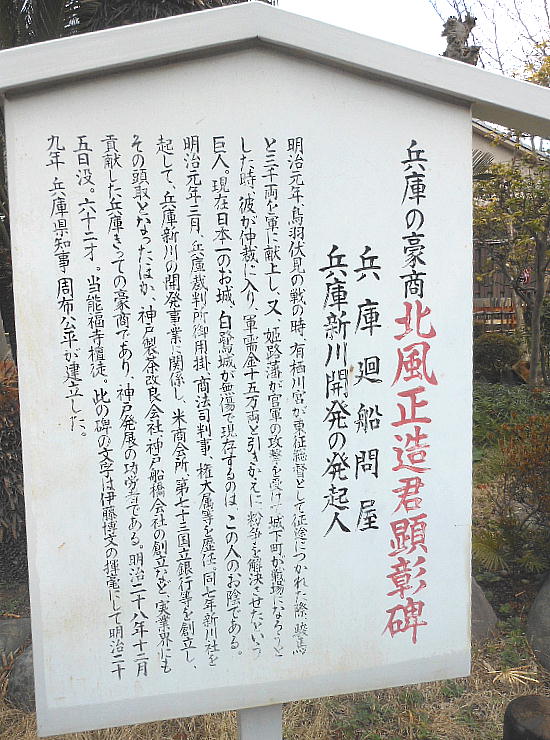 兵庫の豪商北風正造君顕彰碑
兵庫廻船問屋
兵庫新川開発の発起人
明治元年、鳥羽伏見の戦の時、有栖川宮が東征総督として征途につかれた際、駿馬
と三千両を軍に献上し、又、姫路藩が官軍の攻撃を受けて城下町が戦場になろうと
した時、彼が仲裁に入り、軍需金十五万両と引きかえに紛争を解決させたという
巨人。現在日本一のお城、白鷺城が無傷で現存するのは、この人のお陰である。
明治元年三月、兵庫裁判所御用掛、商法司判事、権大属等を歴任、同七年新川社を
起して、兵庫新川の開発事業に関係し、米商会所、第七十三国立銀行等を創立し、
その頭取となったほか、神戸製茶改良会社、神戸船橋会社の創立など、実業界にも
貢献した兵庫きっての豪商であり、神戸発展の功労者である。明治二十八年十二月
五日没。六十二才。当能福寺檀徒。此の碑の文字は伊藤博文の揮毫にして明治二十
九年 兵庫県知事 周布公平が建立した。